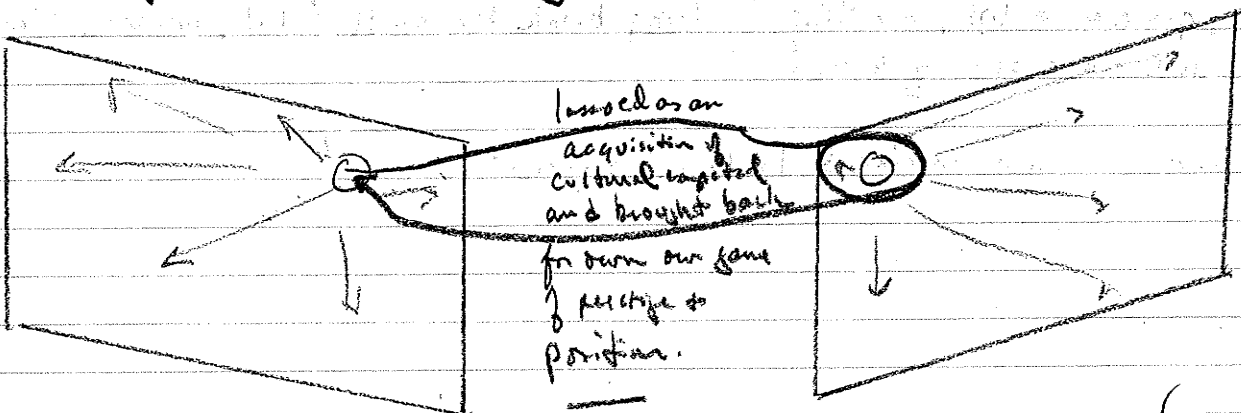 lassoed as an
acquisition of
cultural capital
and brought back
for our own game
of prestige &
position.